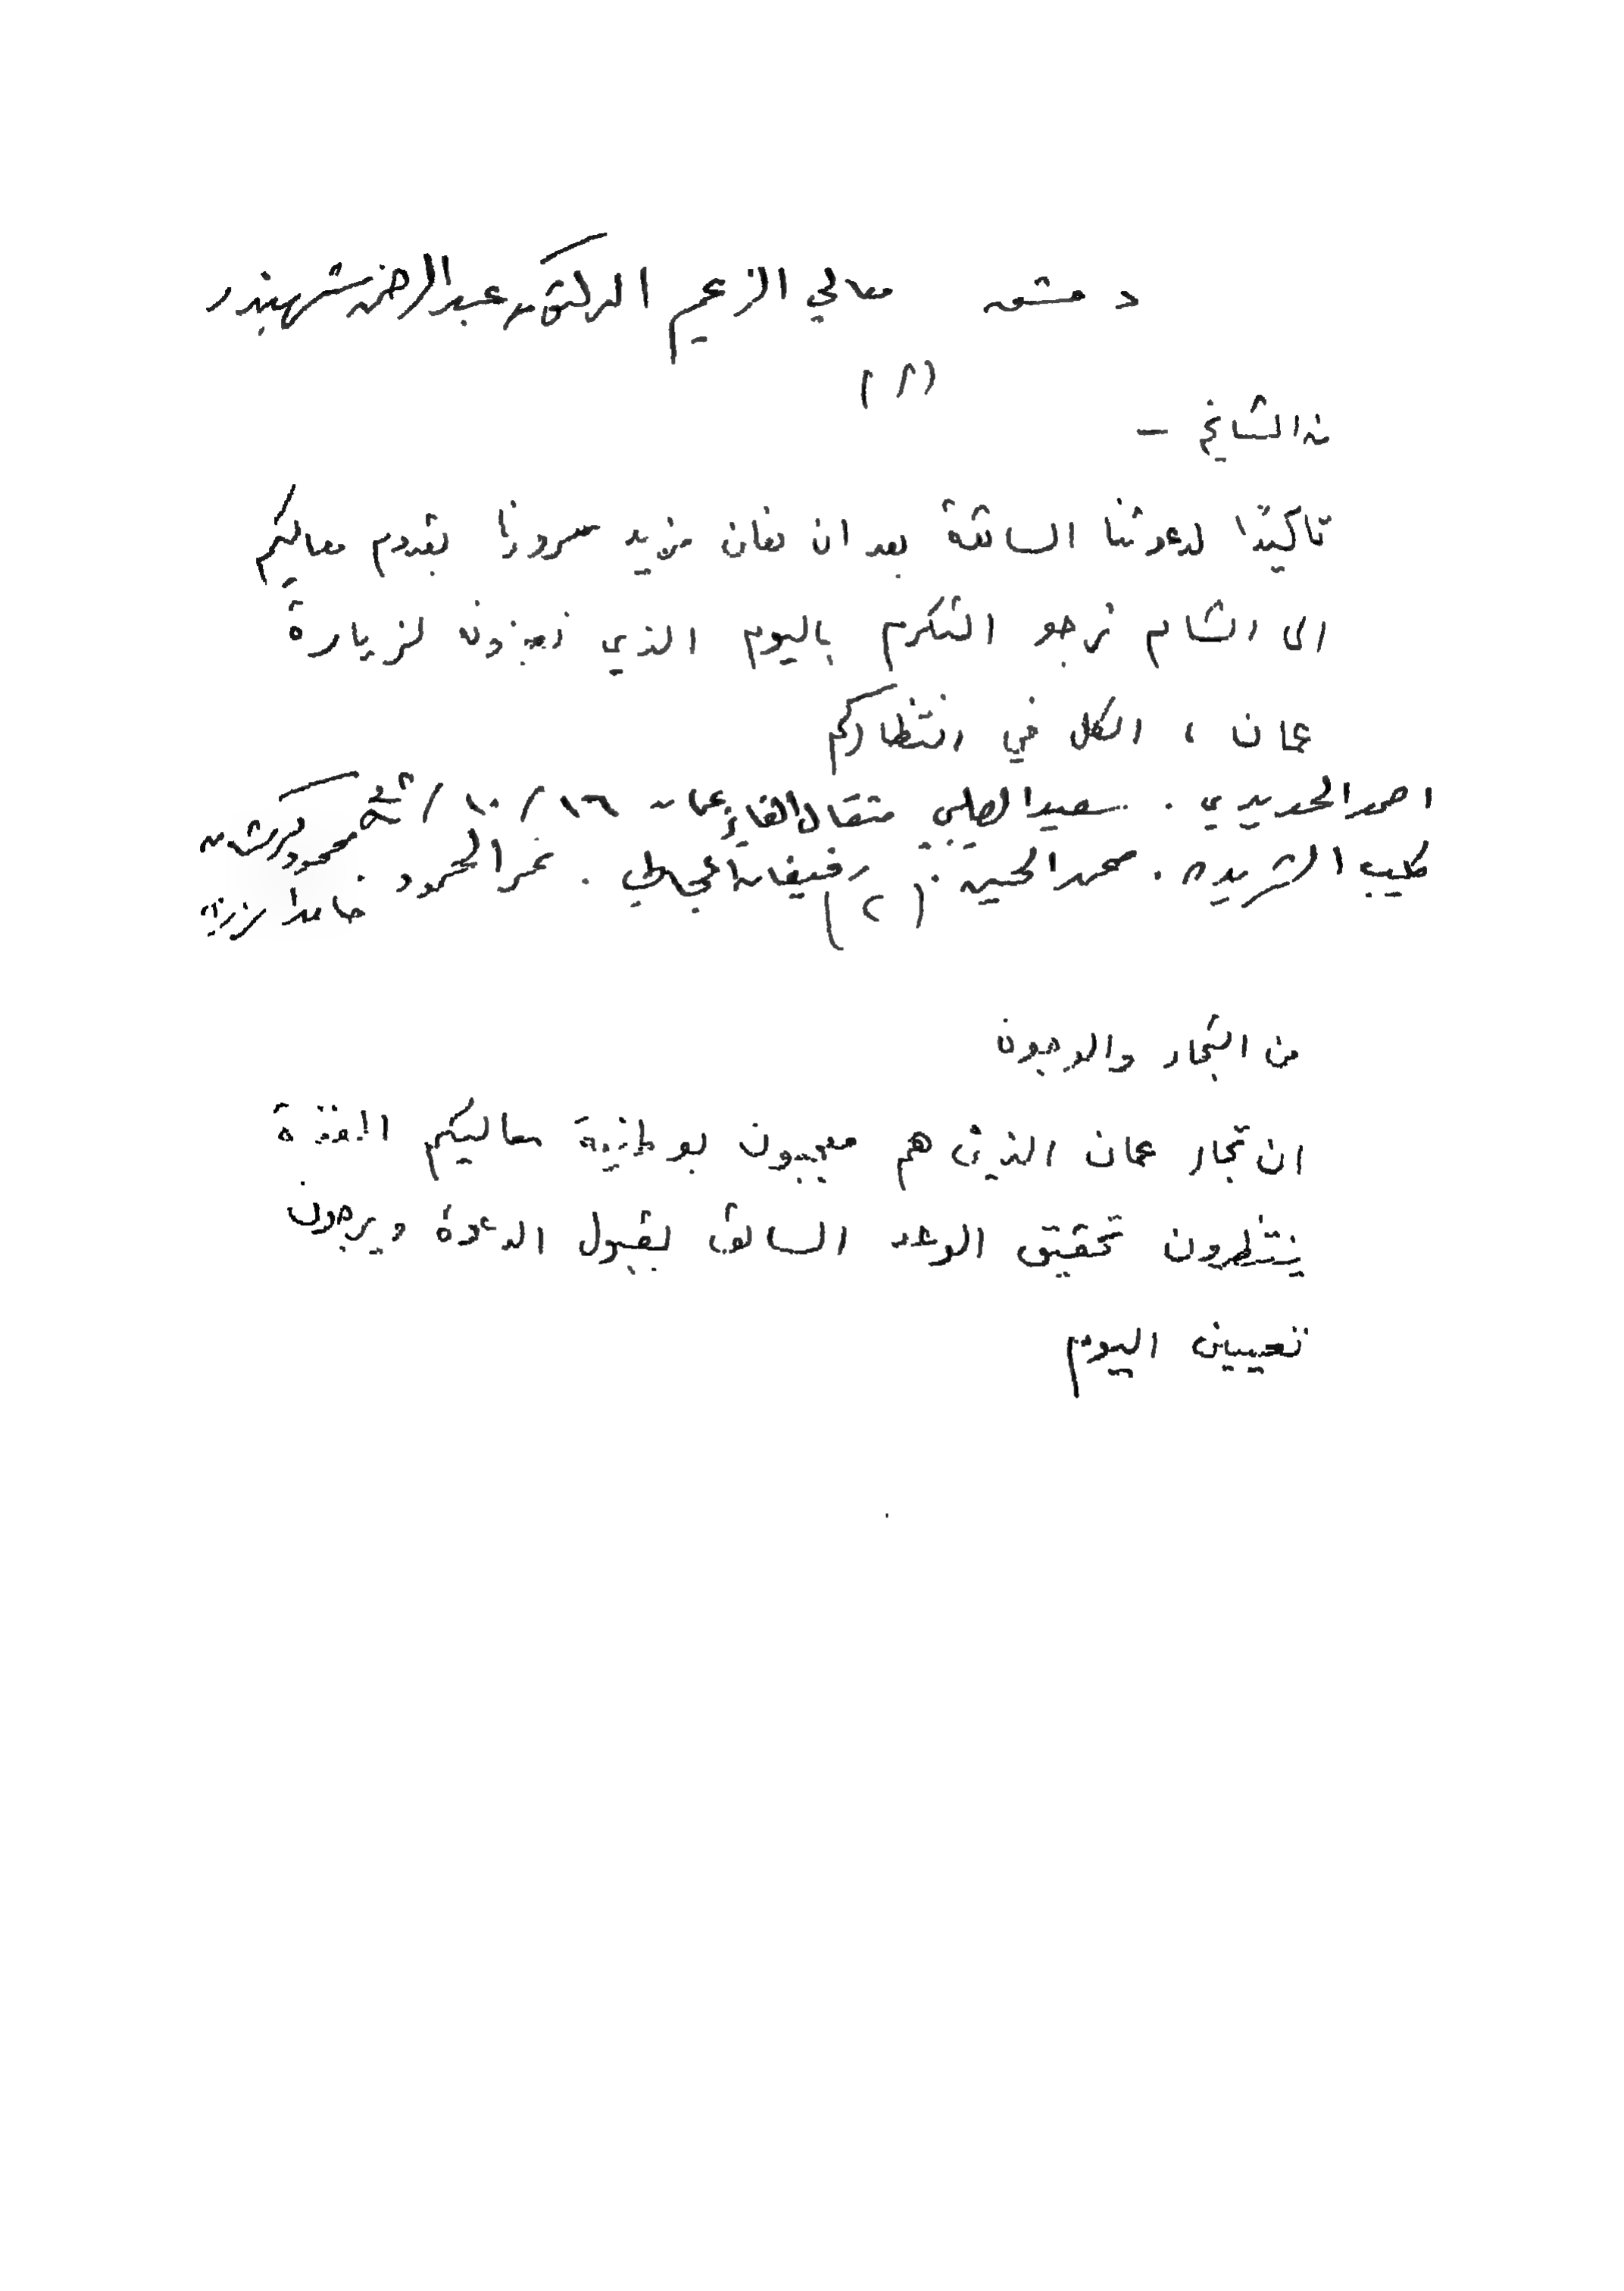 دمشق معالي الزعيم الدكتور عبدالرحمن شهبندر
(١)
من المشايخ –
تاكيدًا لدعوتنا السابقة بعد ان نعلن مزيد سرورنا بقدوم معاليكم
الى الشام نرجو التكرم باليوم الذي لزيارة
عمان ، الكل في انتظاركم
احمد الحديدي . سعيد الصليبي مثقال الفايز عمان ١٦ / ١٠ /
كليب الشريده . محمد الحسين . رفيفان المجالي . نمر الحمود محمود كريشان
(٢)
من التجار والوجوه
ان تجار عمان الذين هم معجبون بوطنية معاليكم الفذة
ينتظرون تحقيق الوعد السابق بقبول الدعوة ويرجون
تعيين اليوم